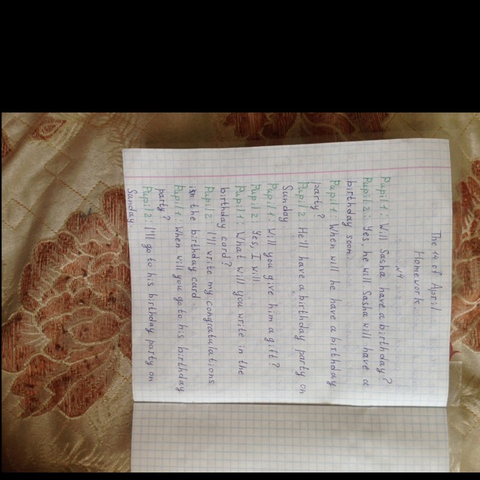 The 14 of April
Homework
№4
Pupil 1: Will Sasha have a birthday?
Pupil 2: Yes, he will Sasha will have a
birthday soon.
Pupil 1: When will he have a birthday
party?
Pupil 2: He'll have a birthday party on
Sunday
Pupil 1: Will you give him a gift?
Pupil 2: Yes, I will
Pupil 1: What will you write in the
birthday card?
Pupil 2: I'll write my congratulations
in the birthday card
Pupil 1: When will you go to his birthday
party?
Pupil 2: I'll go to his birthday party on
Sunday